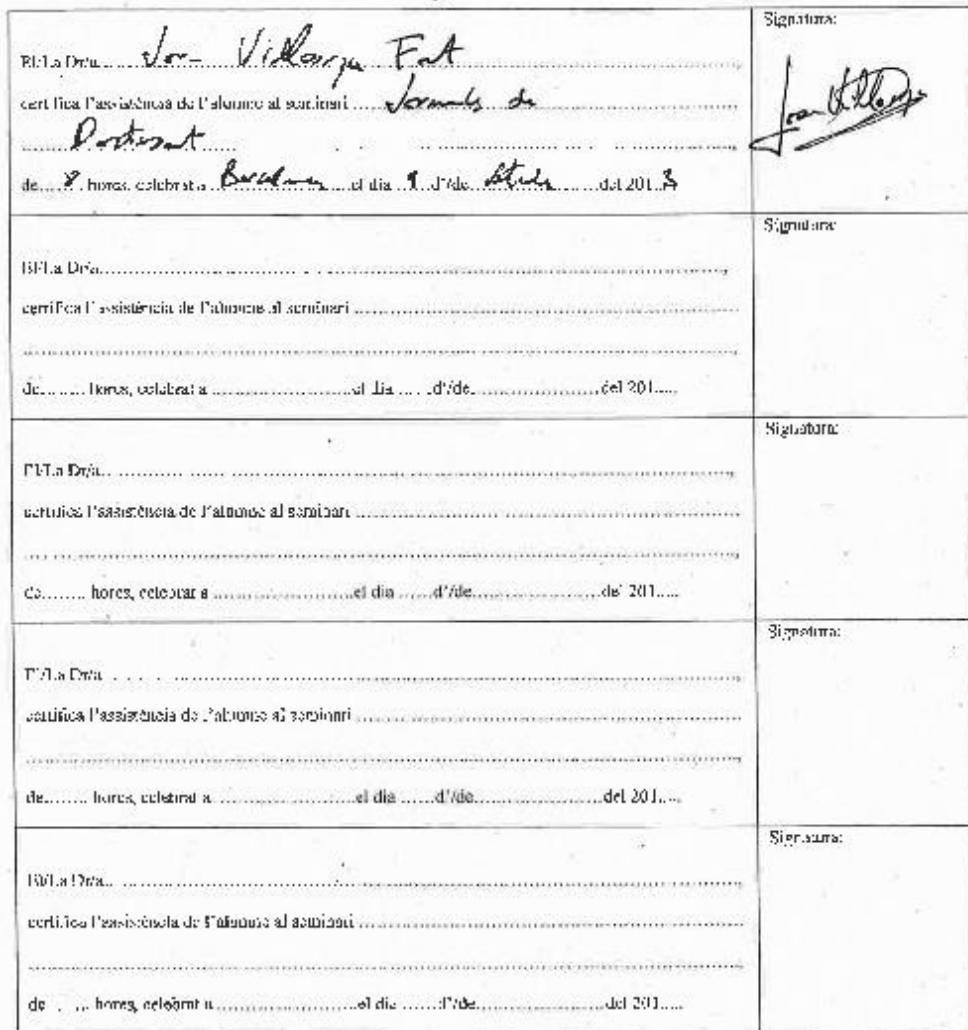 Signatura:
El/La Dr/a. Joan Villarroya Font
certifica l'assistència de l'alumne al seminari Jornades de
Doctorat
de 8 hores, celebrat a Barcelona el dia 9 d'/de del 2013
Signatura:
El/La Dr/a.
certifica l'assistència de l'alumne al seminari
de hores, celebrat a el dia d'/de del 201
Signatura:
El/La Dr/a.
certifica l'assistència de l'alumne al seminari
de hores, celebrat a el dia d'/de del 201
Signatura:
El/La Dr/a.
certifica l'assistència de l'alumne al seminari
de hores, celebrat a el dia d'/de del 201
Signatura:
El/La Dr/a.
certifica l'assistència de l'alumne al seminari
de hores, celebrat a el dia d'/de del 201